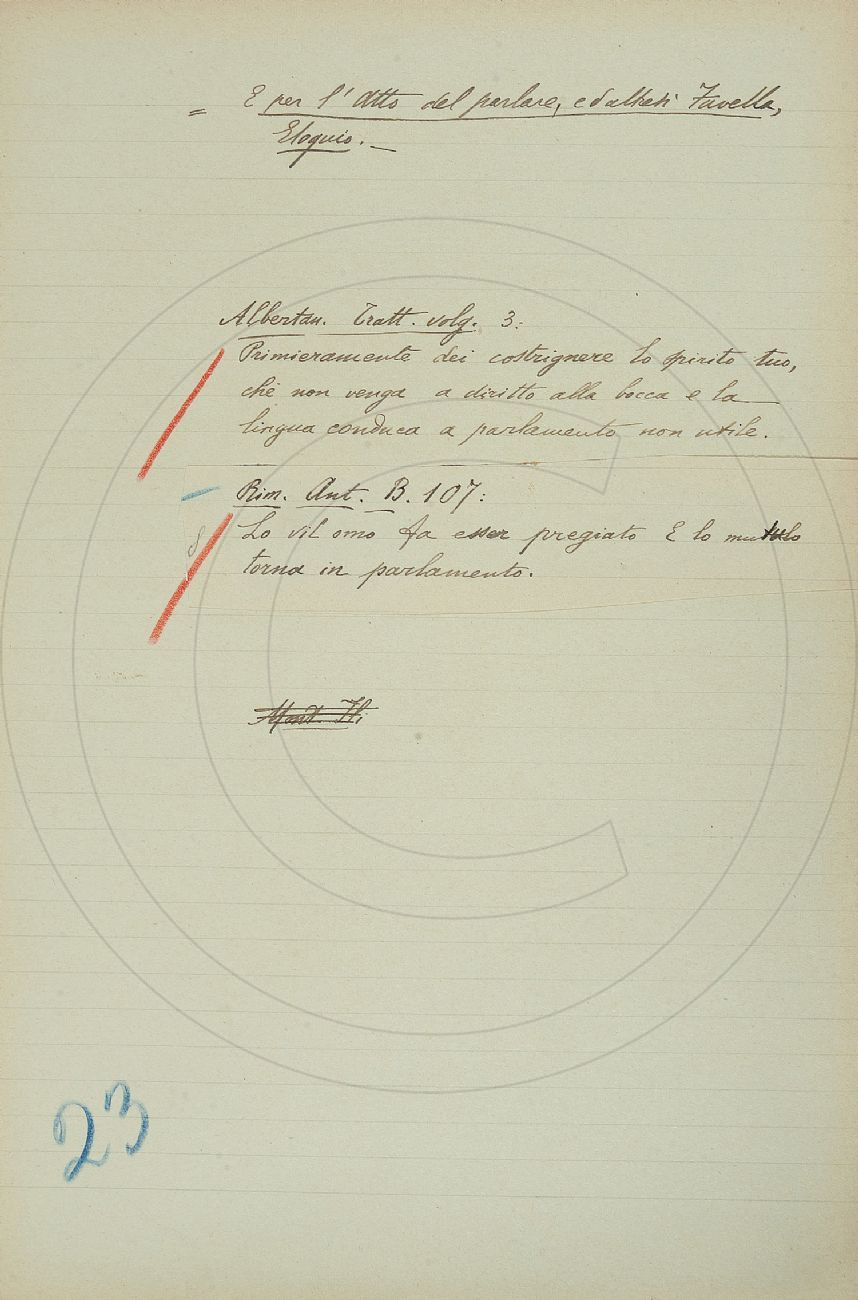 = E per l'Atto del parlare, ed altresì Favella,
Eloquio. —
Albertan. Tratt. volg. 3:
Primieramente dei costrignere lo spirito tuo,
che non venga a diritto alla bocca e la
lingua conduca a parlamento non utile.
Rim. Ant. B. 107:
Lo vil omo fa esser pregiato E lo mutulo
torna in parlamento.
23